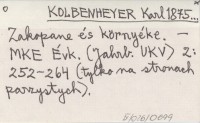 KOLBENHEYER Karl 1875...
Zakopane és környéke. —
MKE Évk. (Jahrb. UKV) 2:
252-264 (tylko na stronach
parzystych).